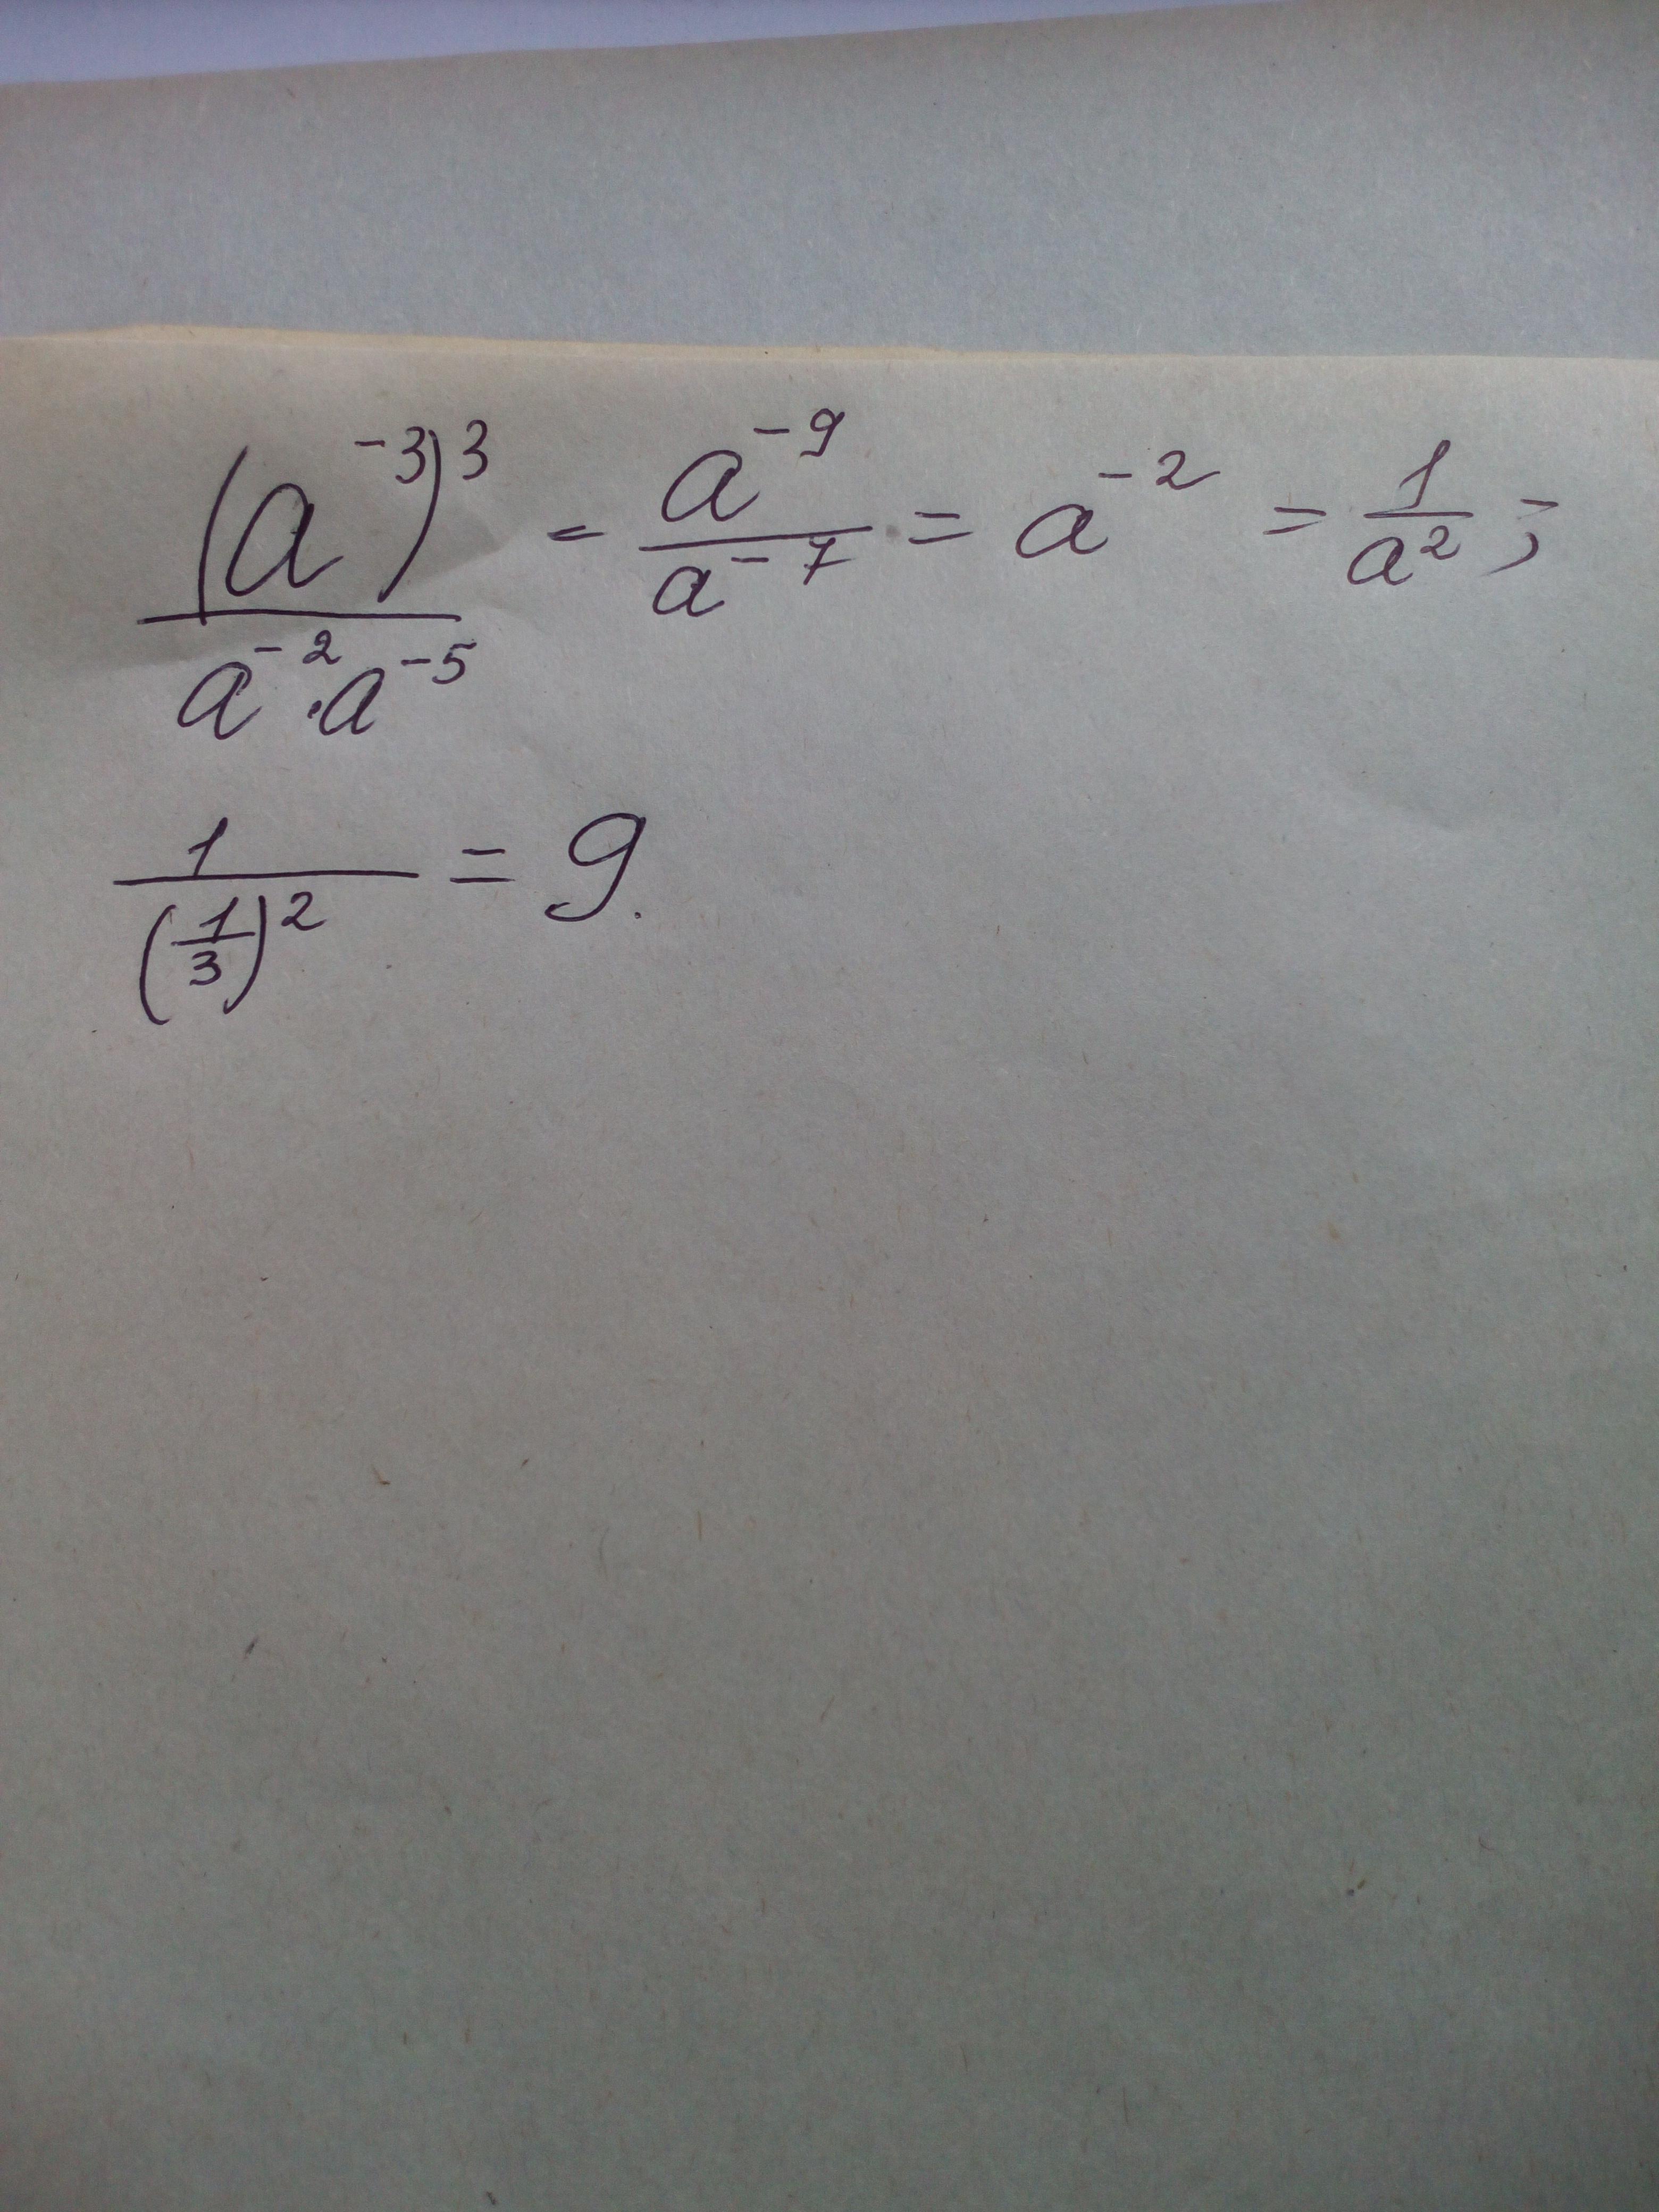 (a^-3)^3 / (a^-2 · a^-5) = a^-9 / a^-7 = a^-2 = 1/a^2 ;
1 / (1/3)^2 = 9.